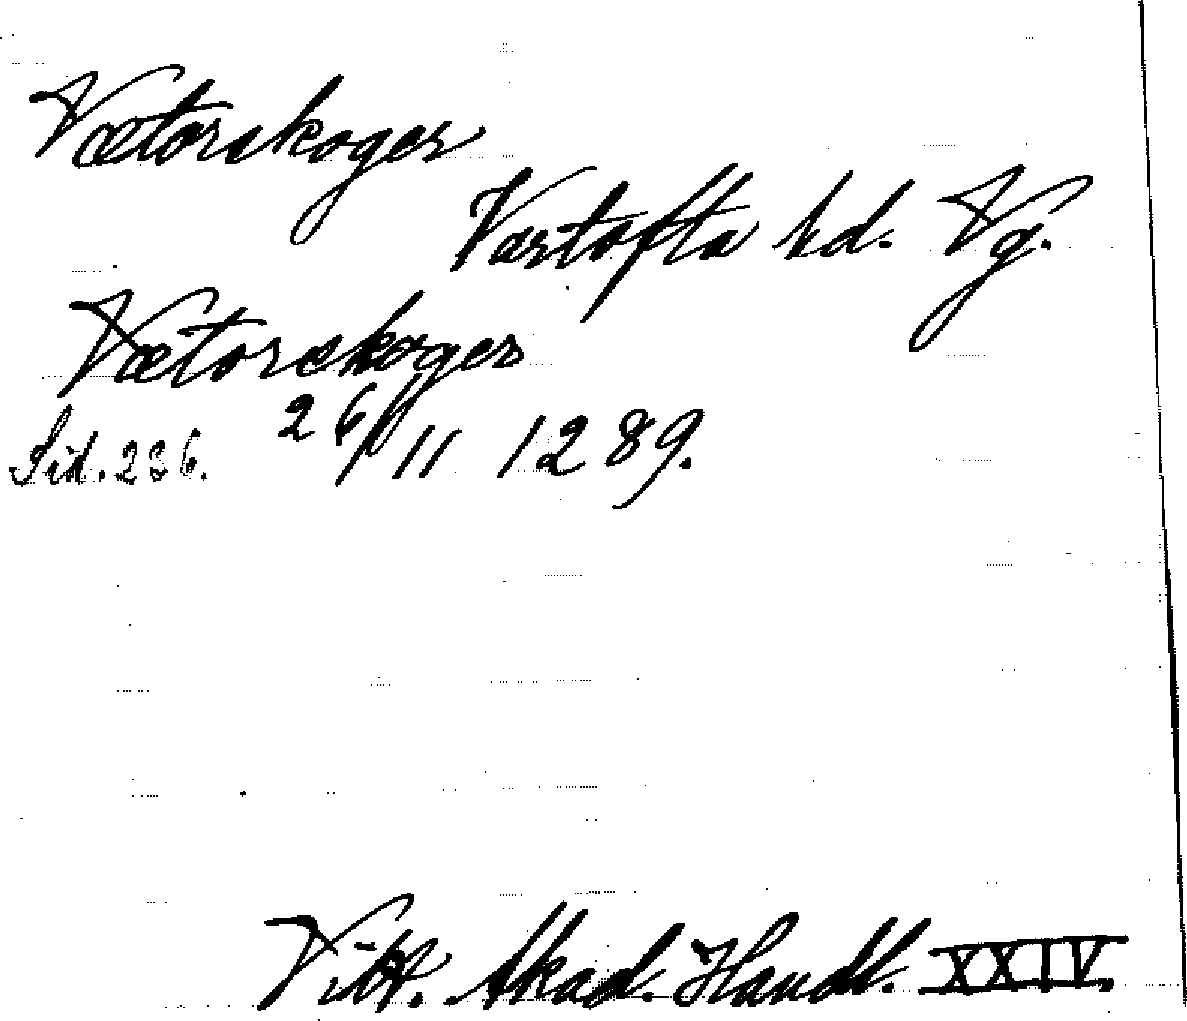 Vætorskoger
Vartofta hd. Vg.
Vætorskoger
Sid. 236. 26/11 1289.
Vitt. Akad. Handl. XXIV.